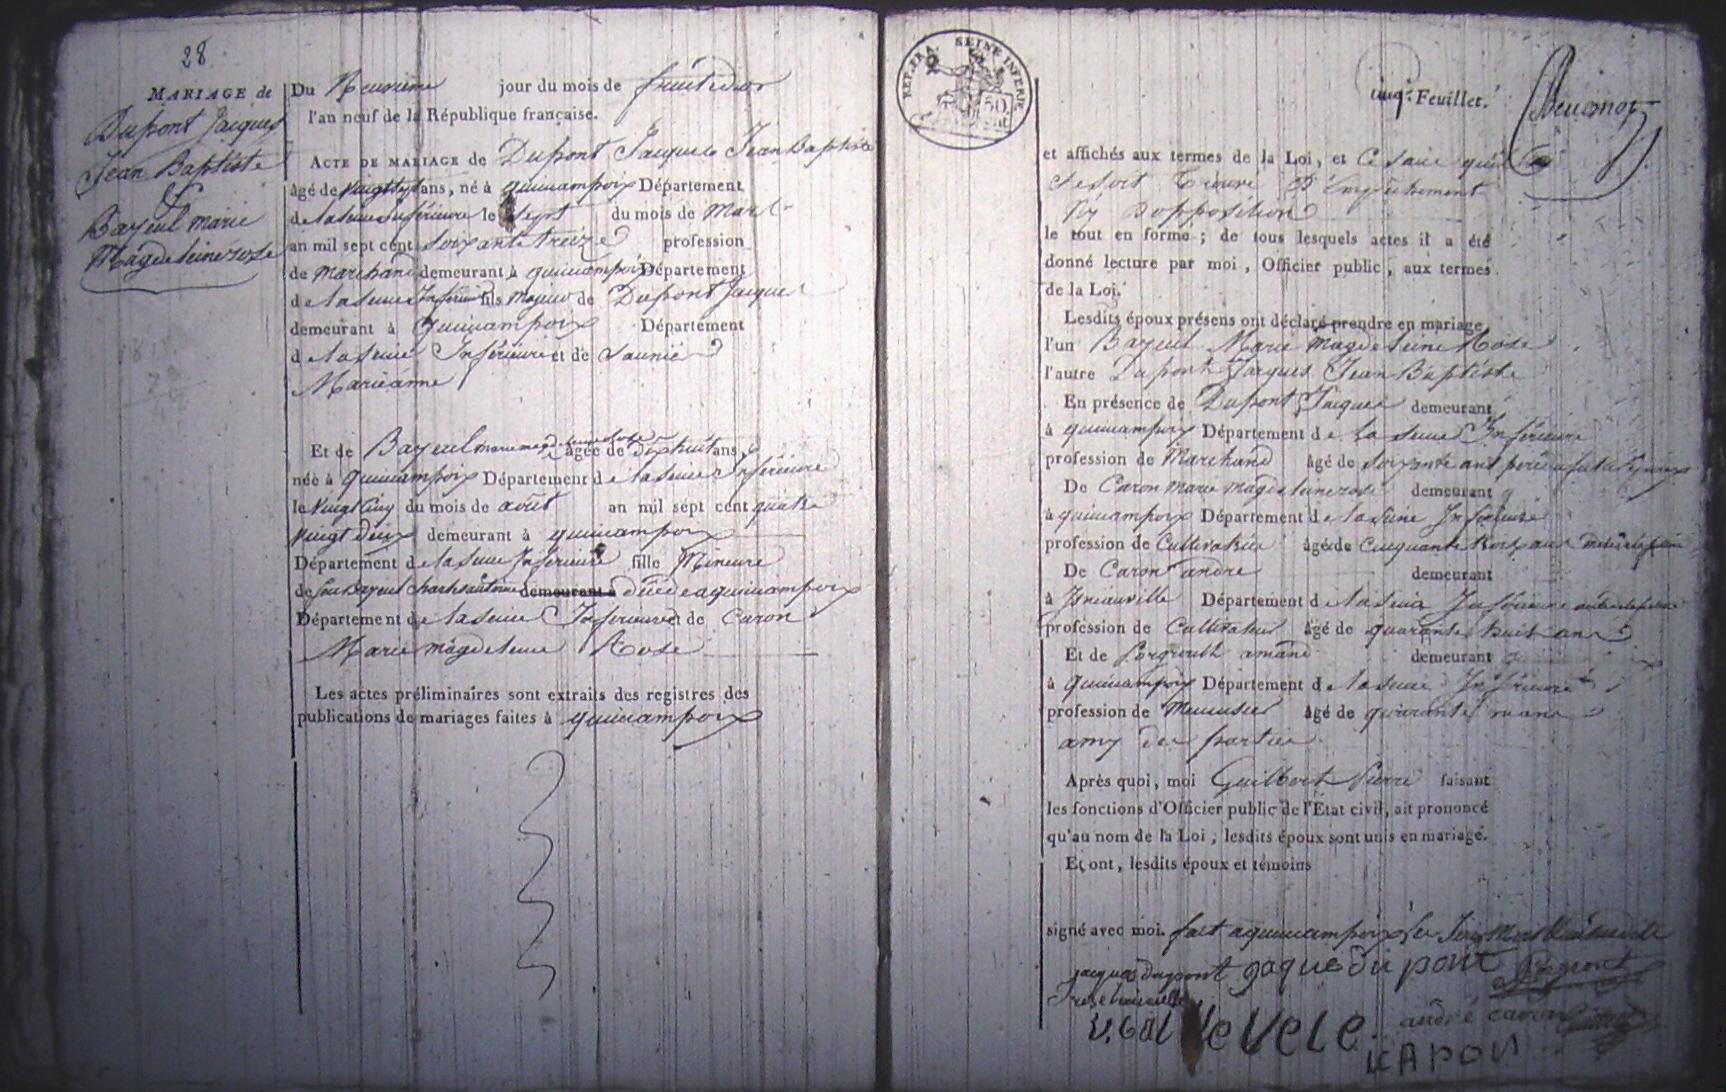 28
MARIAGE de
Dupont Jacques
Jean Baptiste
&
Bayeul marie
Magdeleine rose
Du Neuvieme jour du mois de fructidor
l'an neuf de la République française.
ACTE DE MARIAGE de Dupont Jacques Jean Baptiste
âgé de vingt ans, né à quincampoix Département
de la seine inférieure le sept du mois de Mars
an mil sept cent soixante treize profession
de marchand demeurant à quincampoix Département
de la seine Inférieure fils majeur de Dupont Jacques
demeurant à quincampoix Département
de la seine Inférieure et de Saunié
Marieanne
Et de Bayeul marie magdeleine rose âgée de dix huit ans
née à quincampoix Département de la seine Inférieure
le vingt cinq du mois de août an mil sept cent quatre
vingt deux demeurant à quincampoix
Département de la seine Inférieure fille Mineure
de feu Bayeul demeurant à a quincampoix
Département de la seine Inférieure et de Caron
Marie magdeleine Rose
Les actes préliminaires sont extraits des registres des
publications de mariages faites à quincampoix
REP. FRA. SEINE INFERIE
50
Feuillet.
et affichés aux termes de la Loi, et
se soit trouvé d'Empêchement
ny d'opposition
le tout en forme ; de tous lesquels actes il a été
donné lecture par moi, Officier public, aux termes
de la Loi.
Lesdits époux présens ont déclaré prendre en mariage
l'un Bayeul Marie magdeleine Rose
l'autre Dupont Jacques Jean Baptiste
En présence de Dupont Jacques demeurant
à quincampoix Département de la seine Inférieure
profession de Marchand âgé de soixante ans
De Caron Marie magdeleine rose demeurant
à quincampoix Département de la seine Inférieure
profession de Cultivatrice âgée de Cinquante ans
De Caron andre demeurant
à Isneauville Département de la seine Inférieure
profession de Cultivateur âgé de quarante huit ans
Et de amand demeurant
à quincampoix Département de la seine Inférieure
profession de Menuisier âgé de quarante
amy des parties
Après quoi, moi Guilbert Pierre faisant
les fonctions d'Officier public de l'Etat civil, ait prononcé
qu'au nom de la Loi, lesdits époux sont unis en mariage.
Et ont, lesdits époux et témoins
signé avec moi. fait a quincampoix
jacques dupont gaque du pont
andré caron